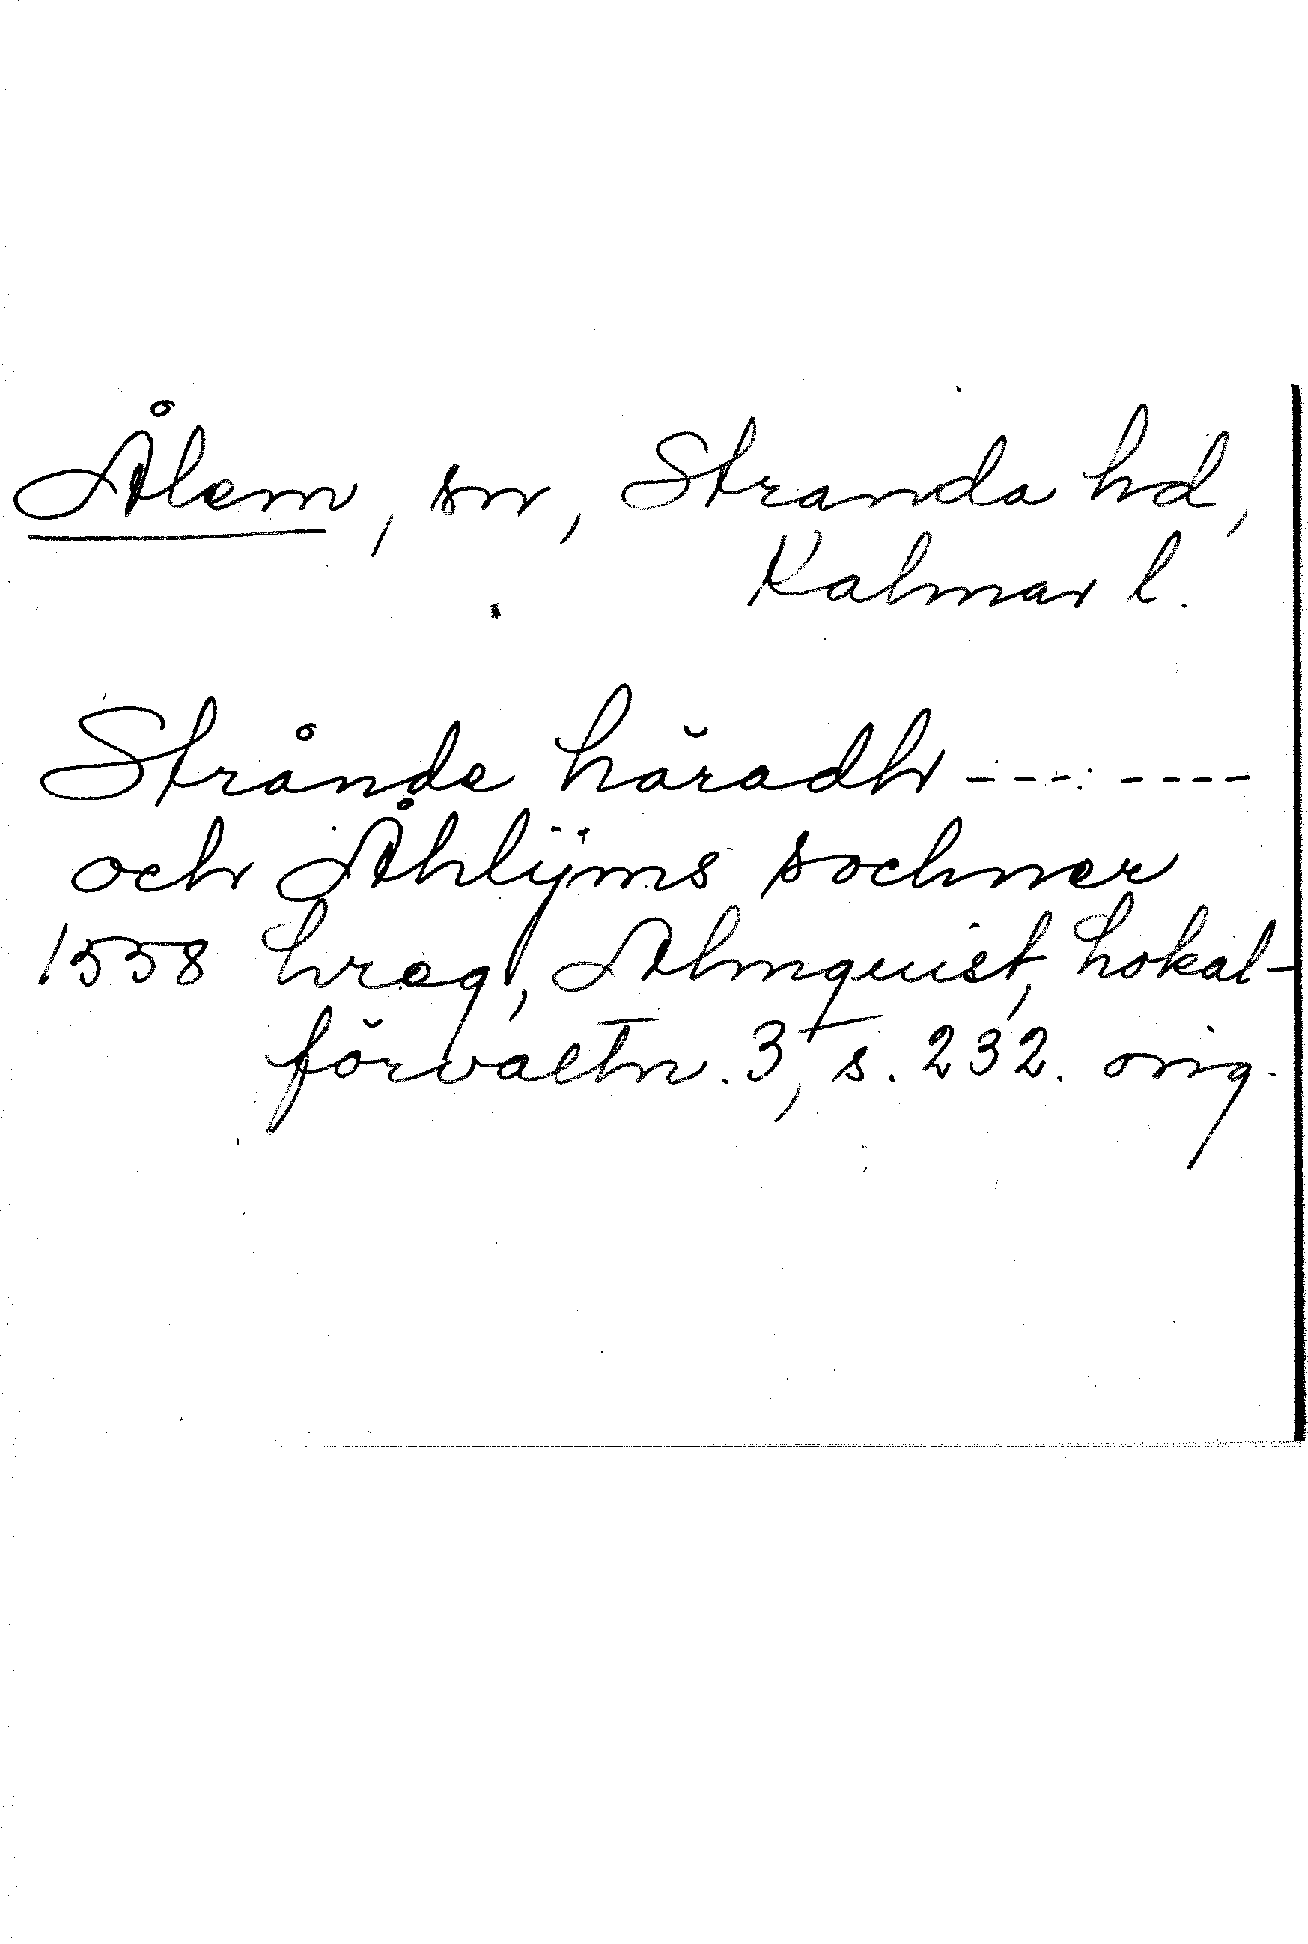 Ålem, sn, Stranda hd,
Kalmar l.
Strånde häradh --- ----
och Åhlÿms sochner
1558 hreg, Almquist, Lokal-
förvaltn. 3, s. 232. orig.